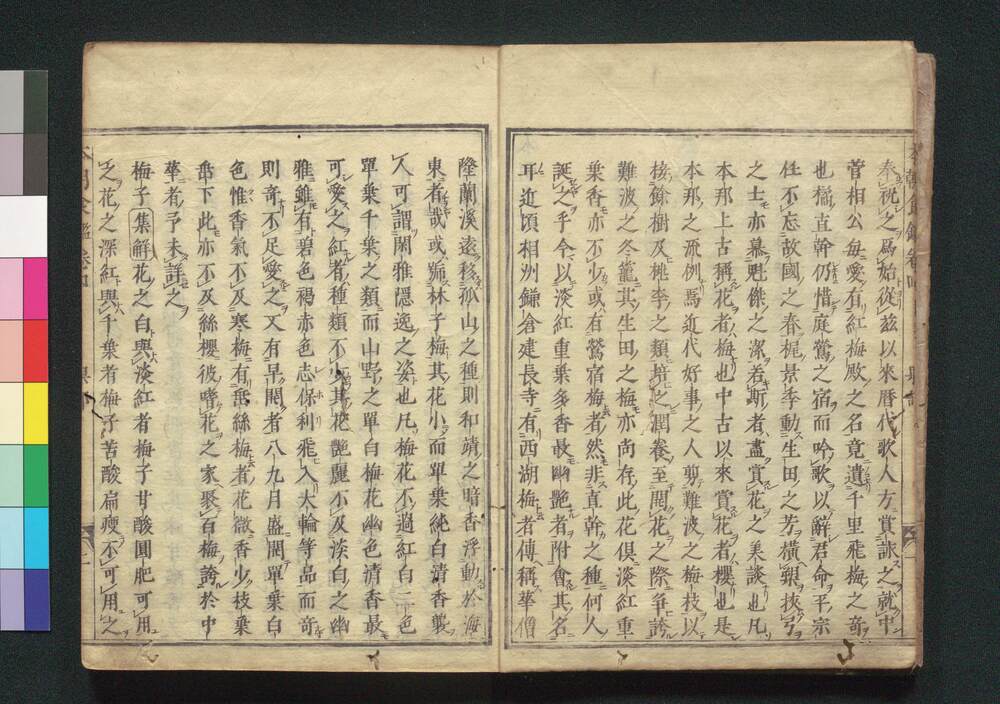 奉祝之爲始從茲以來曆代歌人方賞詠之就中
菅相公毎愛有紅梅殿之名竟遺千里飛梅之奇
也檤直幹仍惜庭鶯之宿而吟歌以辭君命平宗
任不忘故國之春梶景季動生田之芳橫艱挾弓
之士亦慕魁傑之潔若斯者盡賞花之美談也凡
本邦上古稱花者梅也中古以來賞花者櫻也是
本邦之流例焉近代好事之人剪難波之梅枝以
接餘樹及桃李之類培之潤養至開花之際爭誇
難波之冬籠其生田之梅亦尚存此花倶淡紅重
葉香亦不少或有鶯宿梅者然非直幹之種何人
誕之乎今以淡紅重葉多香最幽艶者附會其名
耳近頃相州鎌倉建長寺有西湖梅者傳稱華僧
隆蘭溪遠移孤山之種則和靖之暗香浮動於海
東者哉或號林子梅其花小而單葉純白清香襲
人可謂閑雅隱逸之姿也凡梅花不過紅白二色
單葉千葉之類而山野之單白梅花幽色清香最
可愛之紅者種類不少其花艶麗不及淡白之幽
雅雖有碧色褐赤色志保利飛入大輪等品而奇
則奇不足愛之又有早開者八九月盛開單葉白
色惟香氣不及寒梅有垂絲梅者花微香少枝葉
垂下此亦不及絲櫻彼嗜花之家聚百梅誇於中
華者予未詳之
梅子集解花之白與淡紅者梅子甘酸圓肥可用
之花之深紅與千葉者梅子苦酸扁瘦不可用之